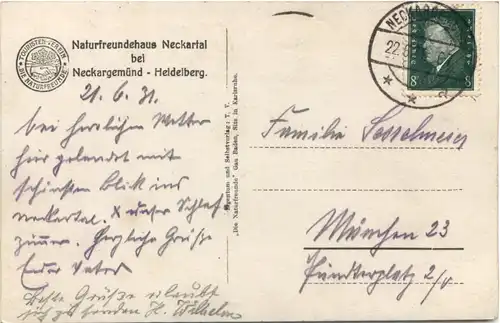 TOURISTEN-VEREIN
DIE NATURFREUNDE
Naturfreundehaus Neckartal
bei
Neckargemünd - Heidelberg.
21. 6. 31.
bei herlichem Wetter
hier gelandet mit
schönsten Blick ins
neckartal. X unser Schlaf-
zimmer. Herzliche Grüße
Euer Vater
Beste Grüße erlaubt
sich zu senden H. Wilhelm
Eigentum und Selbstverlag: T. V.
„Die Naturfreunde" Gau Baden, Sitz in Karlsruhe.
NECKARG
22.
8 8
Familie Sesselmeier
München 23
2/v